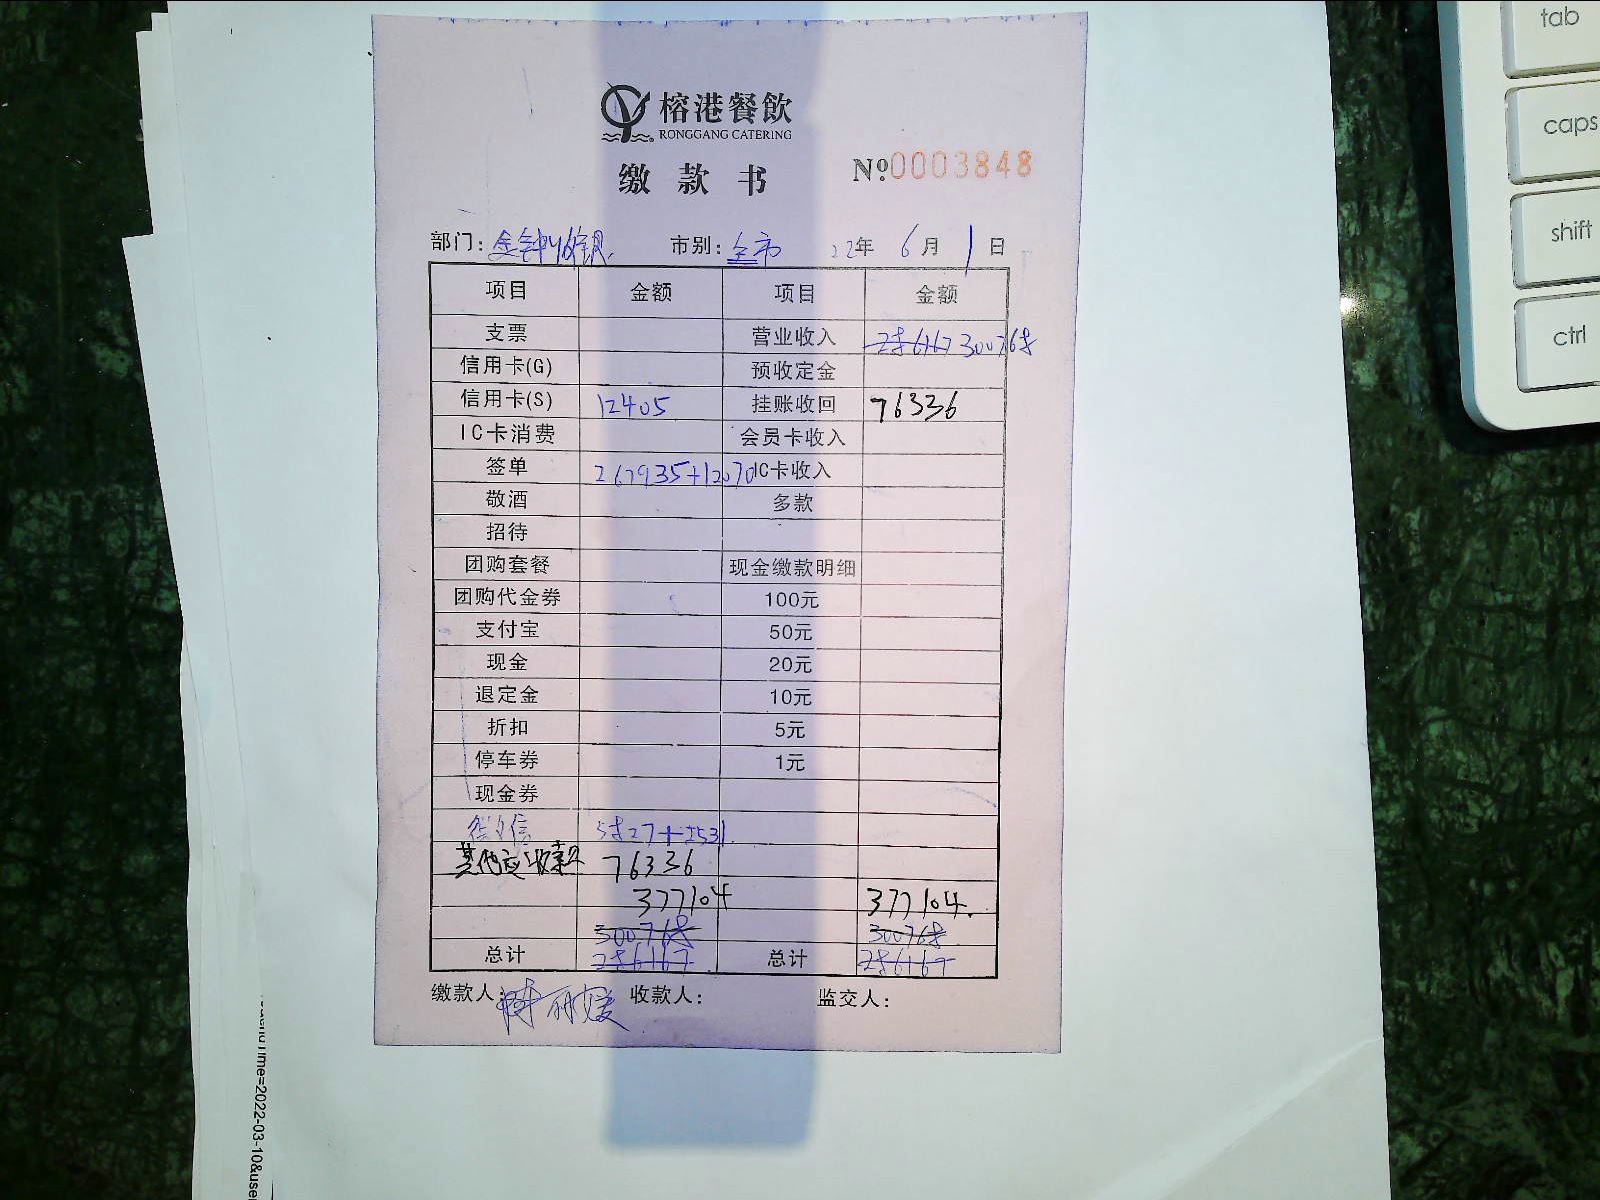 榕港餐飲
RONGGANG CATERING
缴款书
№0003848
部门：金钟收银 市别：全市 22年 6月 1日
项目 金额 项目 金额
支票 营业收入 286167 300768
信用卡(G) 预收定金
信用卡(S) 12405 挂账收回 76336
IC卡消费 会员卡收入
签单 267935+12070 IC卡收入
敬酒 多款
招待
团购套餐 现金缴款明细
团购代金券 100元
支付宝 50元
现金 20元
退定金 10元
折扣 5元
停车券 1元
现金券
微信 5827+2531
其他应收款 76336
377104 377104.
300768 300768
总计 286167 总计 286167
缴款人： 收款人： 监交人：
tab
caps
shift
ctrl